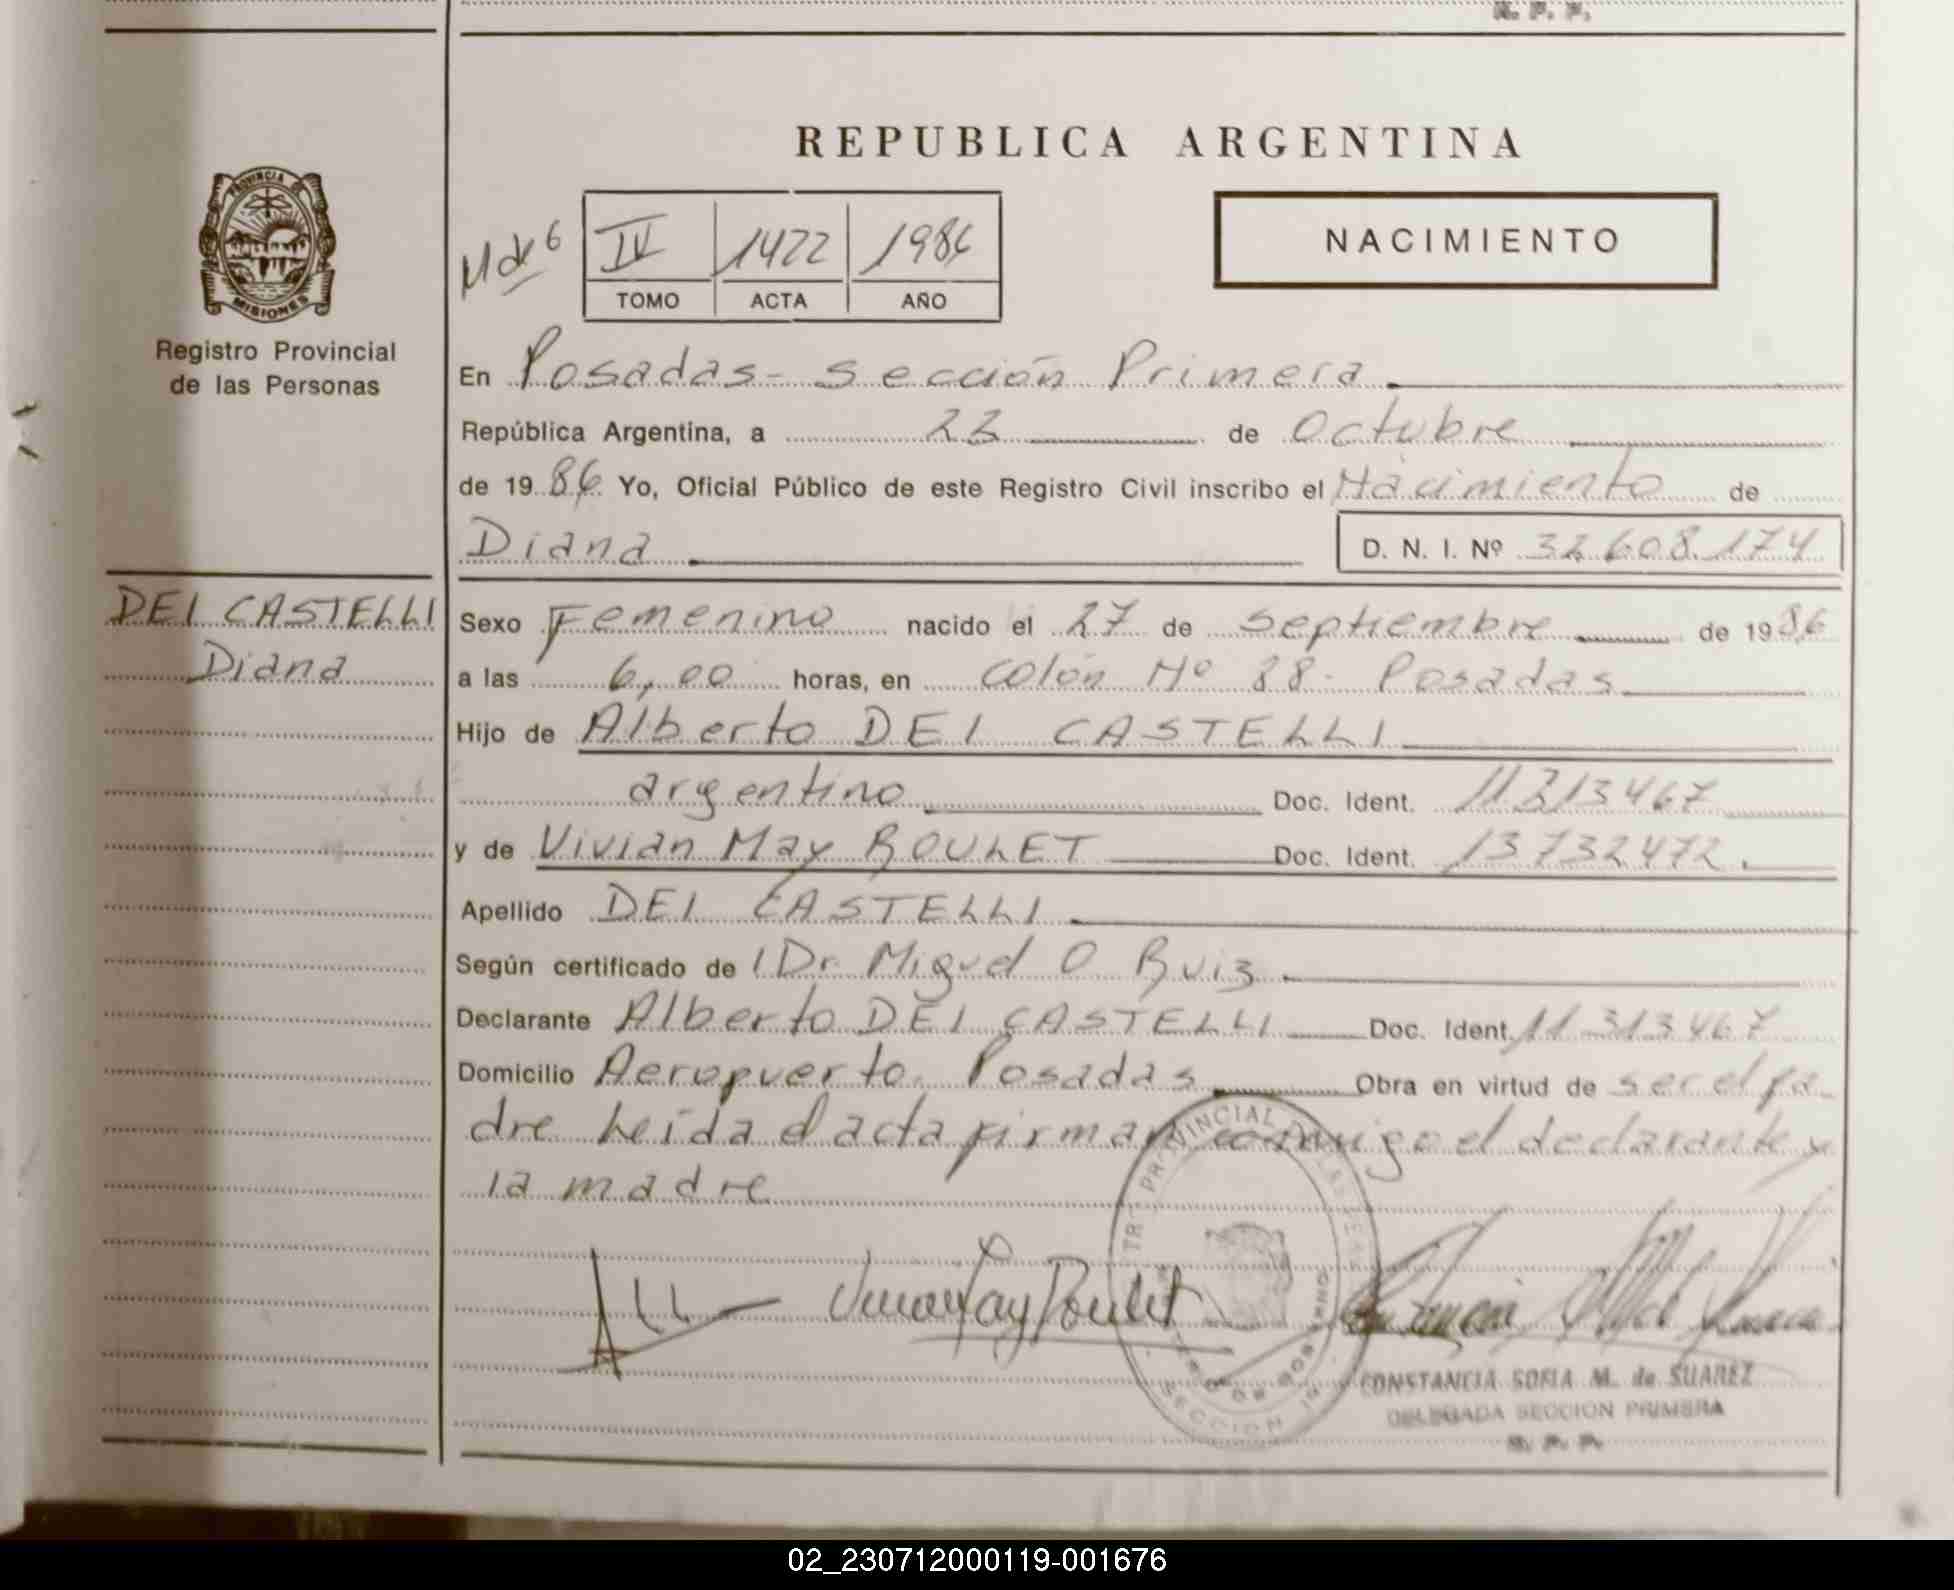 R. P. P.
REPUBLICA ARGENTINA
PROVINCIA DE
MISIONES
Registro Provincial
de las Personas
IV 1422 1986
TOMO ACTA AÑO
NACIMIENTO
En Posadas- sección Primera
República Argentina, a 23 de Octubre
de 1986 Yo, Oficial Público de este Registro Civil inscribo el Nacimiento de
Diana D. N. I. Nº 32.608.174
DEI CASTELLI
Diana
Sexo Femenino nacido el 27 de septiembre de 1986
a las 6,00 horas, en colón Nº 88- Posadas
Hijo de Alberto DEI CASTELLI
argentino Doc. Ident. 11313467
y de Vivian May ROULET Doc. Ident. 13732472.
Apellido DEI CASTELLI
Según certificado de Dr. Miguel O Ruiz
Declarante Alberto DEI CASTELLI Doc. Ident. 11313467
Domicilio Aeropuerto. Posadas Obra en virtud de ser el pa
dre Leída el acta firman conmigo el declarante y
la madre
CONSTANCIA SOFIA M. de SUAREZ
DELEGADA SECCION PRIMERA
R. P. P.
02_230712000119-001676